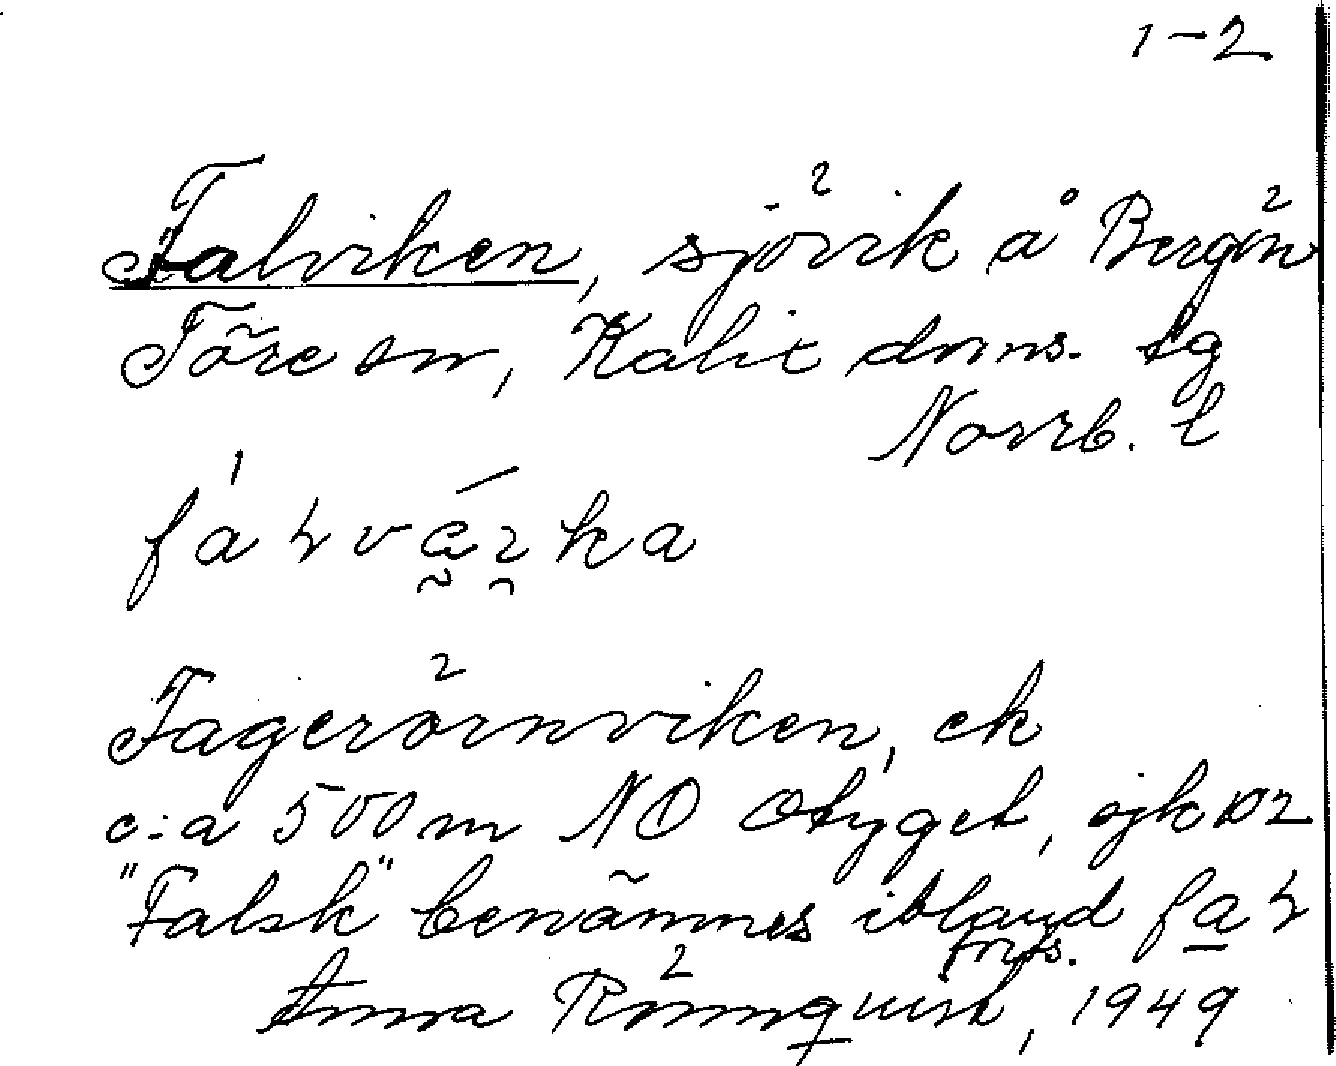 1-2
Falviken, sjövik å Bergön
Töre sn, Kalix doms. lg
Norrb. l
Fagerörnviken, ek
c:a 500 m NO Otyget, ejk 102
"Falsk" benämnes ibland fa
forts.
Anna Rönnquist, 1949